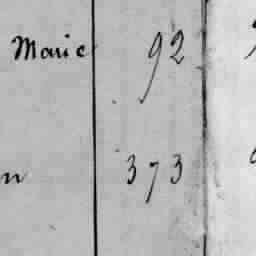 Marie 92
n 373